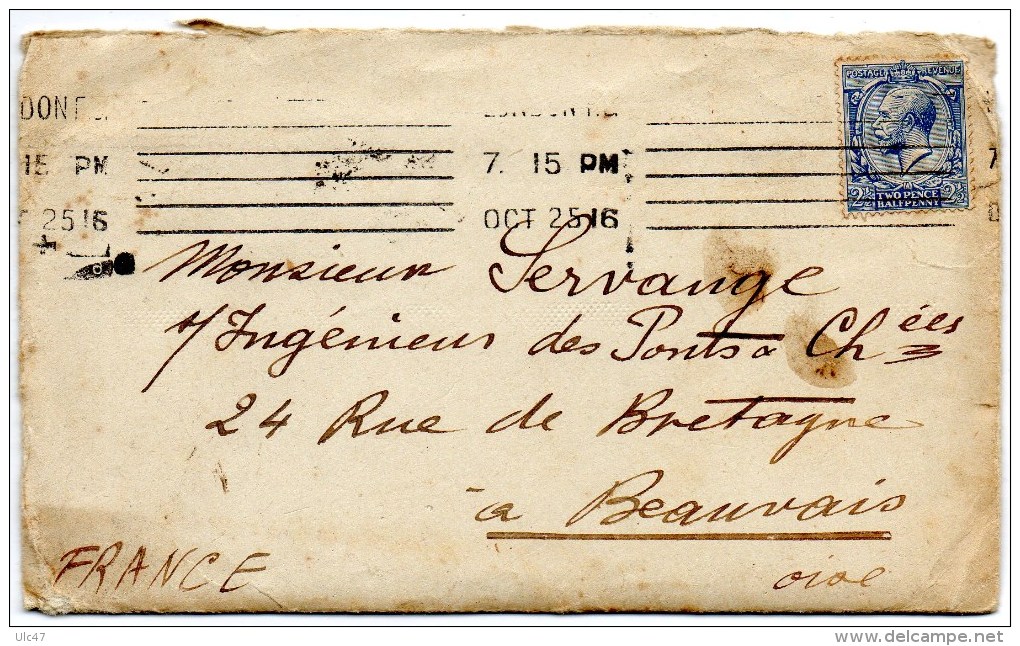 DON
LONDON
POSTAGE REVENUE
15 PM
7. 15 PM
7
25 16
OCT 25 16
2½ TWO PENCE HALFPENNY 2½
Monsieur Servange
s/Ingénieur des Ponts & Chées
24 Rue de Bretagne
à Beauvais
oise
FRANCE
Ulc47
www.delcampe.net